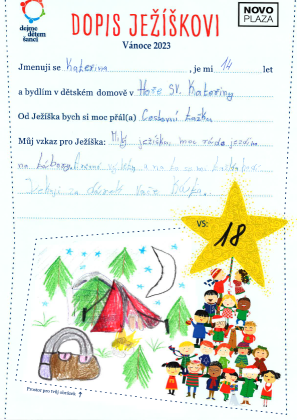 dejme
dětem
šanci
DOPIS JEŽÍŠKOVI
NOVO
PLAZA
Vánoce 2023
Jmenuji se Kateřina, je mi 14 let
a bydlím v dětském domově v Hoře SV. Kateřiny
Od Ježíška bych si moc přál(a) Cestovní tašku
Můj vzkaz pro Ježíška: Milý ježíšku, moc ráda jezdím
na tábory,
Děkuji za Vaše
VS: 18
Prostor pro tvůj obrázek ↑